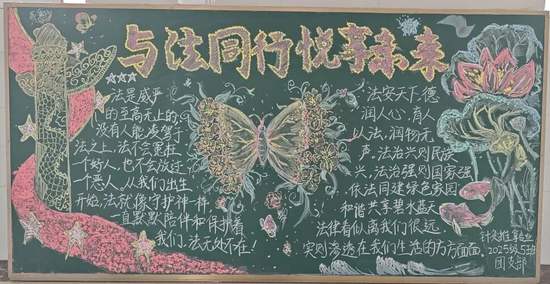 与法同行悦享未来
法是威严
的至高无上的,
没有人能凌驾于
法之上,法不会冤枉一
个好人,也不会放过
一个恶人,从我们出生
开始,法就像守护神一样,
一直默默陪伴和保护着
我们,法无处不在!
法安天下,德
润人心,育人
以法,润物无
声,法治兴则民族
兴,法治强则国家强
依法同建绿色家园
和谐共享碧水蓝天
法律看似离我们很远,
实则渗透在我们生活的方方面面
针灸推拿专业
2025级5班
团支部